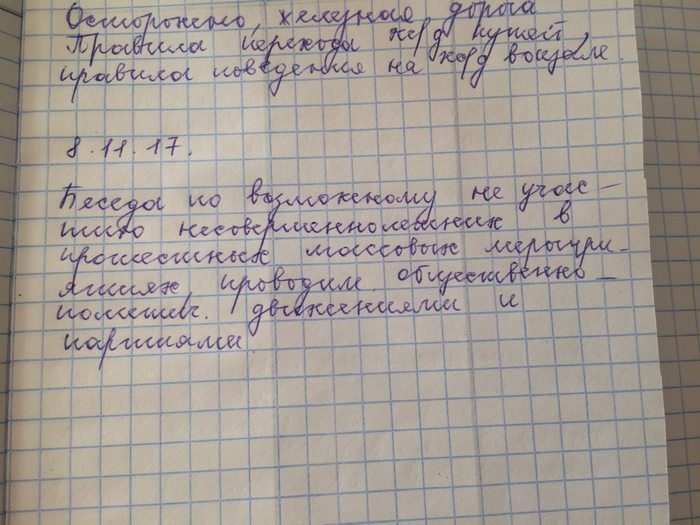 Осторожно, железная дорога
Правила перехода ж/д путей,
правила поведения на ж/д вокзале.
8.11.17.
Беседа по возможному не учас-
тию несовершеннолетних в
протестных массовых меропри-
ятиях, проводим. общественно-
политич. движениями и
партиями